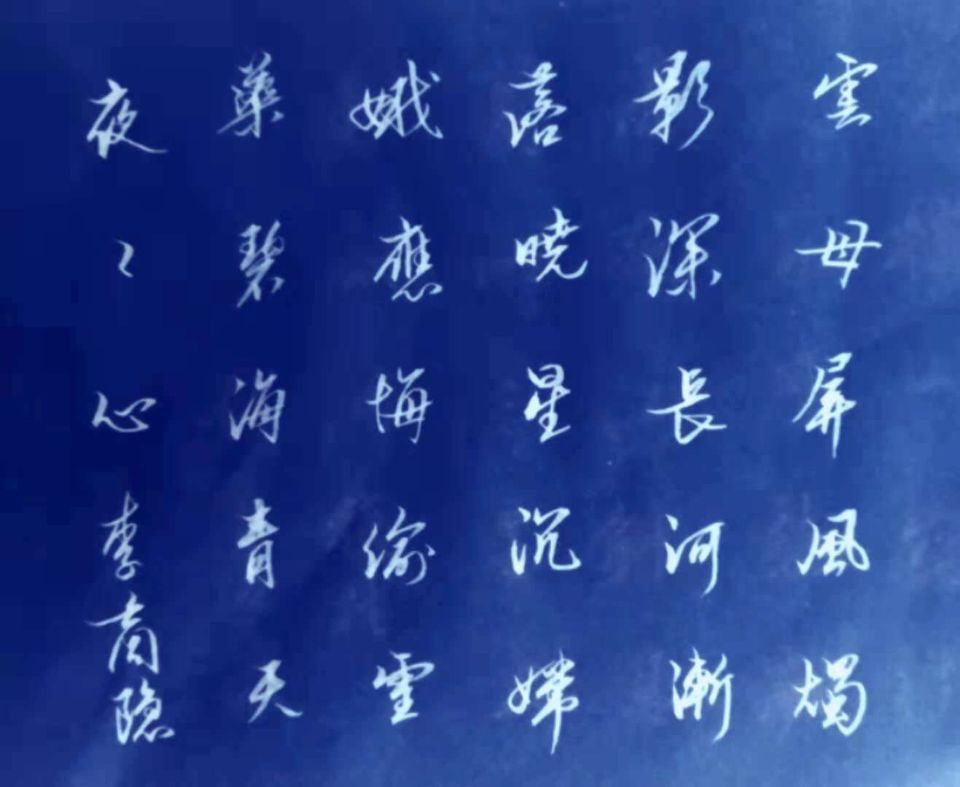 雲母屏風燭
影深長河漸
落曉星沉嫦
娥應悔偷靈
藥碧海青天
夜〻心李商隐